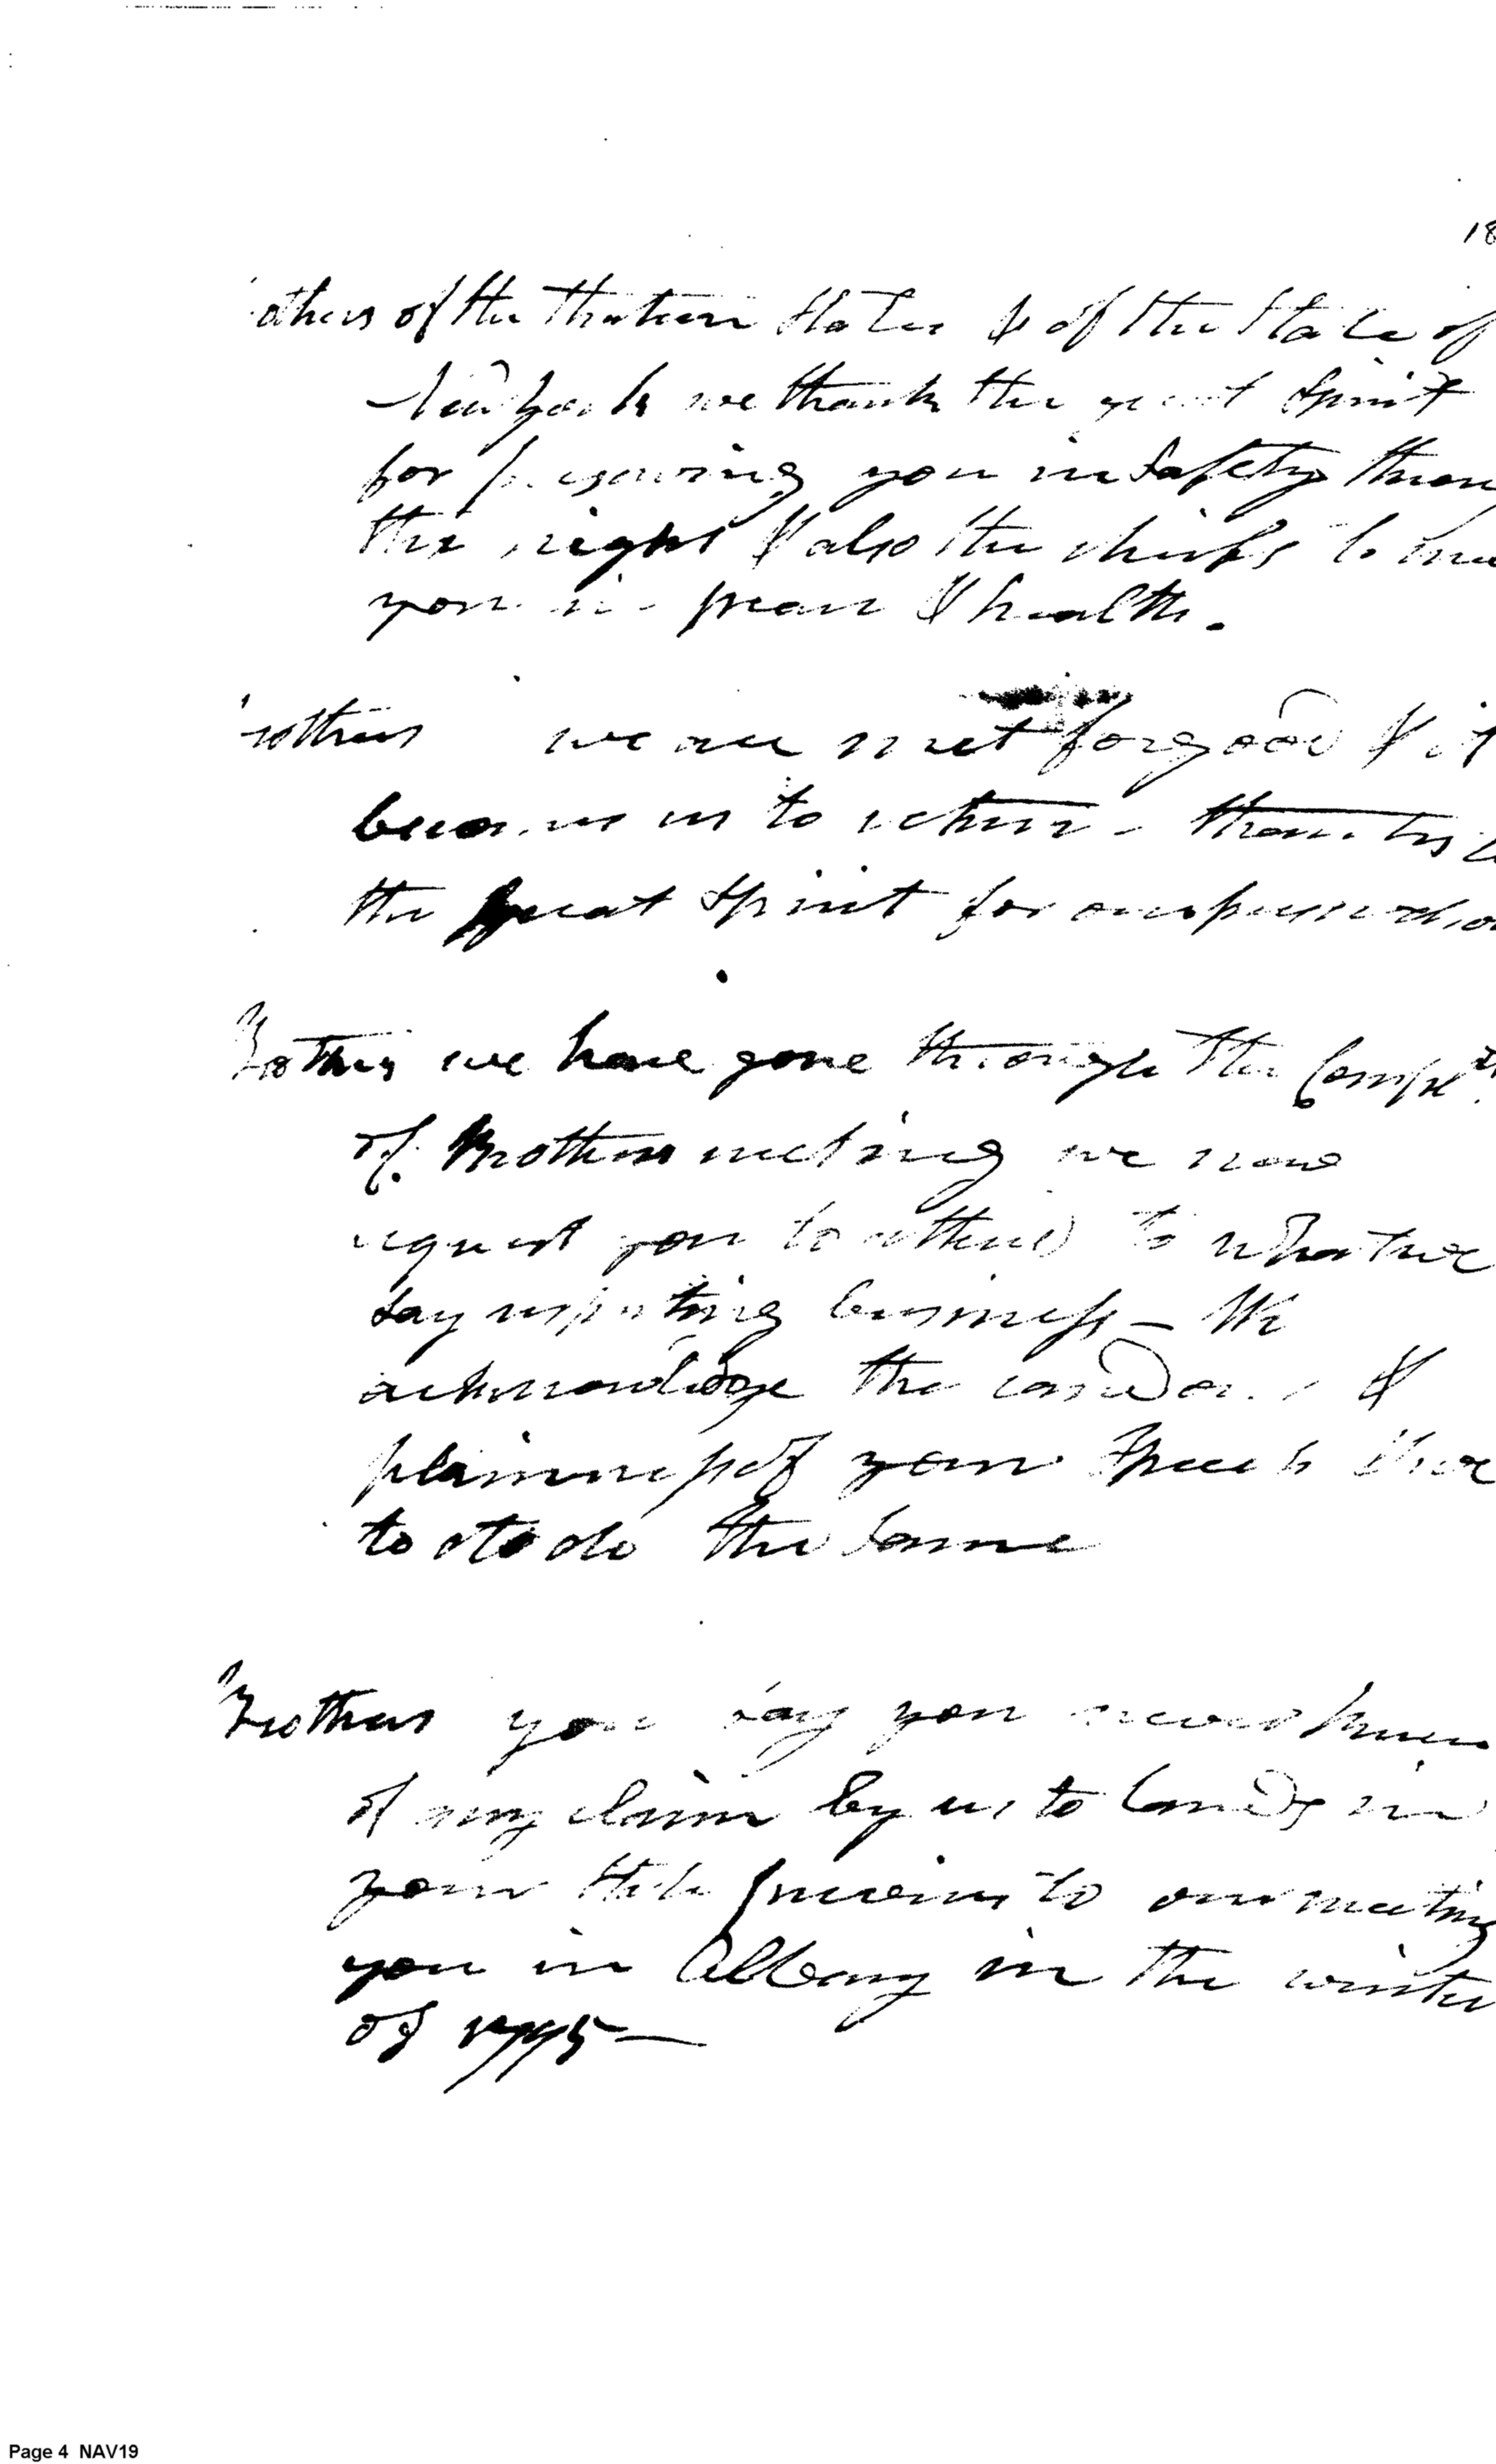 18
others of the Thirteen States & of the State of
New York we thank the great Spirit
for preserving you in Safety throu
the night & also the chiefs to mee
you in peace & health.
rothers we are met for good & it
becomes us to return thanks to
the great Spirit for our preservatio
Brothers we have gone through the Complts
of Brothers meeting we now
request you to attend to what we
say respecting business – We
acknowledge the candour &
plainness of your Speech
to do the same
Brothers you say you never knew
of any claim by us to lands in
your State previous to our meeting
you in Albany in the winter
of 1795 —
Page 4 NAV19